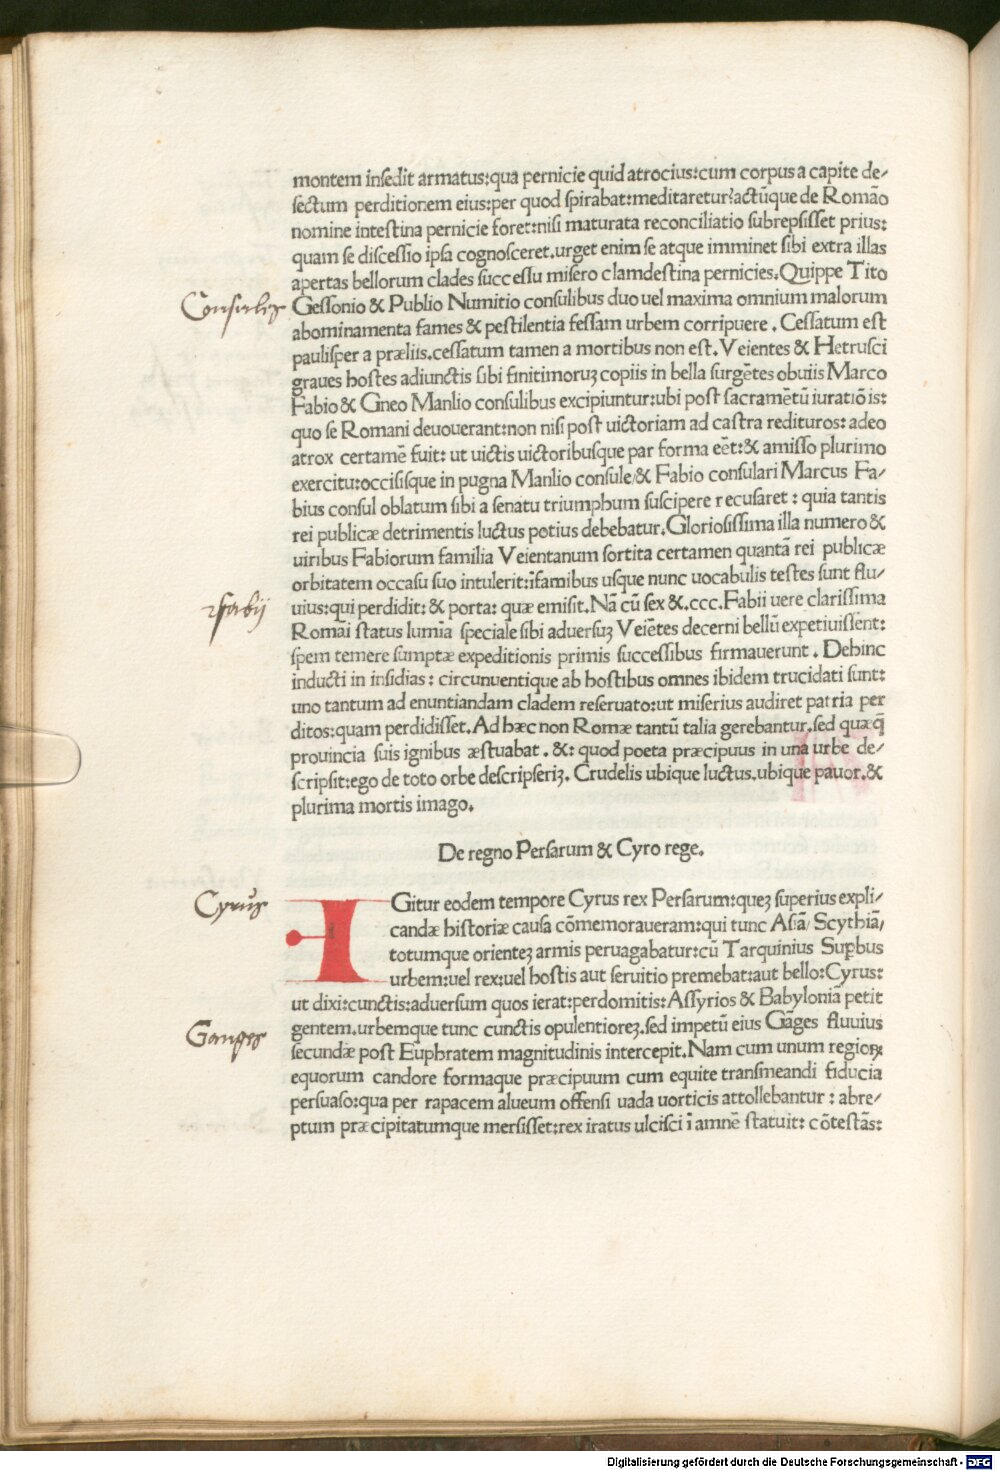 montem insedit armatus:qua pernicie quid atrocius:cum corpus a capite de/
sectum perditionem eius:per quod spirabat:meditaretur?actūque de Romāo
nomine intestina pernicie foret:nisi maturata reconciliatio subrepsisset prius:
quam se discessio ipsa cognosceret.urget enim se atque imminet sibi extra illas
apertas bellorum clades successu misero clamdestina pernicies.Quippe Tito
Consules
Gessonio & Publio Numitio consulibus duo uel maxima omnium malorum
abominamenta fames & pestilentia fessam urbem corripuere . Cessatum est
paulisper a præliis.cessatum tamen a mortibus non est. Veientes & Hetrusci
graues hostes adiunctis sibi finitimoruꝫ copiis in bella surgētes obuiis Marco
Fabio & Gneo Manlio consulibus excipiuntur:ubi post sacramētū iuratiōis:
quo se Romani deuouerant:non nisi post uictoriam ad castra redituros: adeo
atrox certamē fuit: ut uictis uictoribusque par forma eēt:& amisso plurimo
exercitu:occisisque in pugna Manlio consule/& Fabio consulari Marcus Fa/
bius consul oblatum sibi a senatu triumphum suscipere recusaret : quia tantis
rei publicæ detrimentis luctus potius debebatur.Gloriosissima illa numero &
uiribus Fabiorum familia Veientanum sortita certamen quantā rei publicæ
orbitatem occasu suo intulerit:īfamibus usque nunc uocabulis testes sunt flu/
Fabij
uius:qui perdidit: & porta: quæ emisit. Nā cū sex &.ccc.Fabii uere clarissima
Romāi status lumīa speciale sibi aduersuꝫ Veiētes decerni bellū expetiuissent:
spem temere sumptæ expeditionis primis successibus firmauerunt . Dehinc
inducti in insidias : circunuentique ab hostibus omnes ibidem trucidati sunt:
uno tantum ad enuntiandam cladem reseruato:ut miserius audiret patria per
ditos:quam perdidisset.Ad hæc non Romæ tantū talia gerebantur.sed quæq̄
prouincia suis ignibus æstuabat . &: quod poeta præcipuus in una urbe de/
scripsit:ego de toto orbe descripseriꝫ. Crudelis ubique luctus.ubique pauor.&
plurima mortis imago.
De regno Persarum & Cyro rege.
Cyrus
IGitur eodem tempore Cyrus rex Persarum:queꝫ superius expli/
candæ historiæ causa cōmemoraueram:qui tunc Asiā/ Scythiā/
totumque orienteꝫ armis peruagabatur:cū Tarquinius Suꝑbus
urbem:uel rex:uel hostis aut seruitio premebat:aut bello:Cyrus:
ut dixi:cunctis:aduersum quos ierat:perdomitis:Assyrios & Babyloniā petit
Ganges
gentem.urbemque tunc cunctis opulentioreꝫ.sed impetū eius Gāges fluuius
secundæ post Euphratem magnitudinis intercepit.Nam cum unum regioꝝ
equorum candore formaque præcipuum cum equite transmeandi fiducia
persuaso:qua per rapacem alueum offensi uada uorticis attollebantur : abre/
ptum præcipitatumque mersisset:rex iratus ulcisci ī amnē statuit: cōtestās:
Digitalisierung gefördert durch die Deutsche Forschungsgemeinschaft - DFG